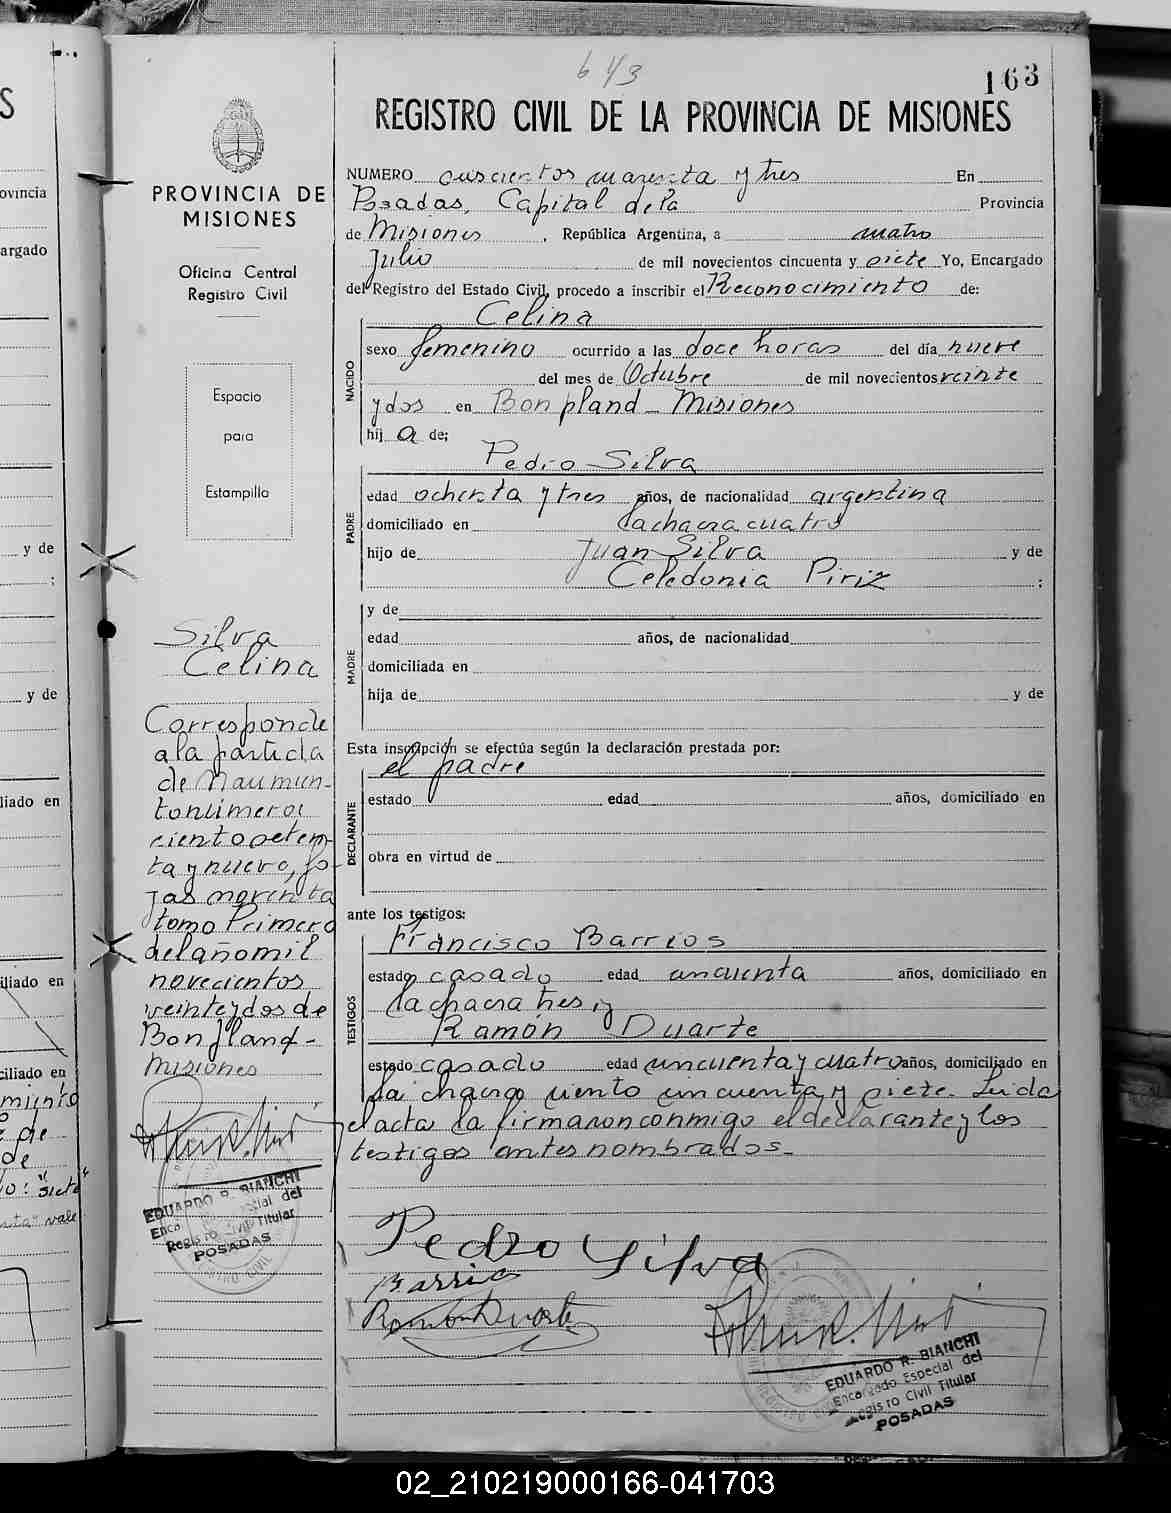 643
163
REGISTRO CIVIL DE LA PROVINCIA DE MISIONES
NUMERO seiscientos cuarenta y tres En
Posadas, Capital de la Provincia
de Misiones, República Argentina, a cuatro
Julio de mil novecientos cincuenta y siete Yo, Encargado
del Registro del Estado Civil, procedo a inscribir el Reconocimiento de:
NACIDO
Celina
sexo femenino ocurrido a las doce horas del día nueve
del mes de Octubre de mil novecientos veinte
y dos en Bonpland - Misiones
hij a de;
PADRE
Pedro Silva
edad ochenta y tres años, de nacionalidad argentina
domiciliado en la chacra cuatro
hijo de Juan Silva y de
Celedonia Piriz ;
MADRE
y de
edad años, de nacionalidad
domiciliada en
hija de y de
Esta inscripción se efectúa según la declaración prestada por:
DECLARANTE
el padre
estado edad años, domiciliado en
obra en virtud de
ante los testigos:
TESTIGOS
Francisco Barrios
estado casado edad cincuenta años, domiciliado en
la chacra tres y
Ramón Duarte
estado casado edad cincuenta y cuatro años, domiciliado en
la chacra ciento cincuenta y siete. Leida
el acta la firmaron conmigo el declarante y los
testigos antes nombrados.-
Pedro Silva
Barrios
Ramón Duarte
EDUARDO R. BIANCHI
Encargado Especial del
Registro Civil Titular
POSADAS
PROVINCIA DE
MISIONES
Oficina Central
Registro Civil
Espacio
para
Estampilla
Silva
Celina
Corresponde
a la partida
de Nacimien-
to número:
ciento seten-
ta y nueve, fo-
jas noventa
tomo Primero
del año mil
novecientos
veinte y dos de
Bonpland -
Misiones
EDUARDO R. BIANCHI
Encargado Especial del
Registro Civil Titular
POSADAS
S
ovincia
argado
y de
;
y de
liado en
iliado en
ciliado en
miento
de
de
io: "siete"
vale
02_210219000166-041703